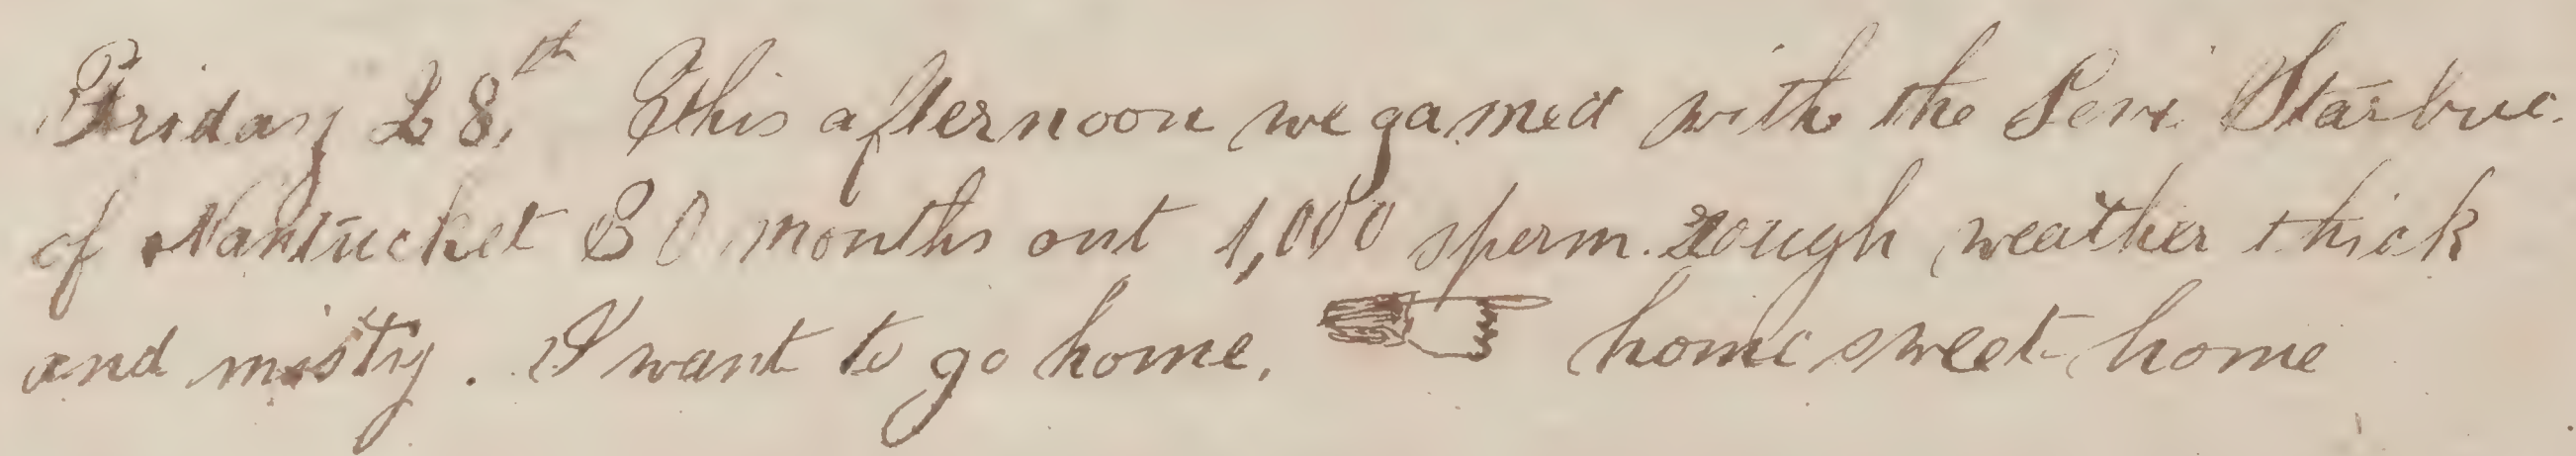 Friday 28.th This afternoon we gamed with the Levi Starbuc.
of Nantucket 30 months out 1,000 sperm. rough weather thick
and misty. I want to go home. ☞ home sweet home